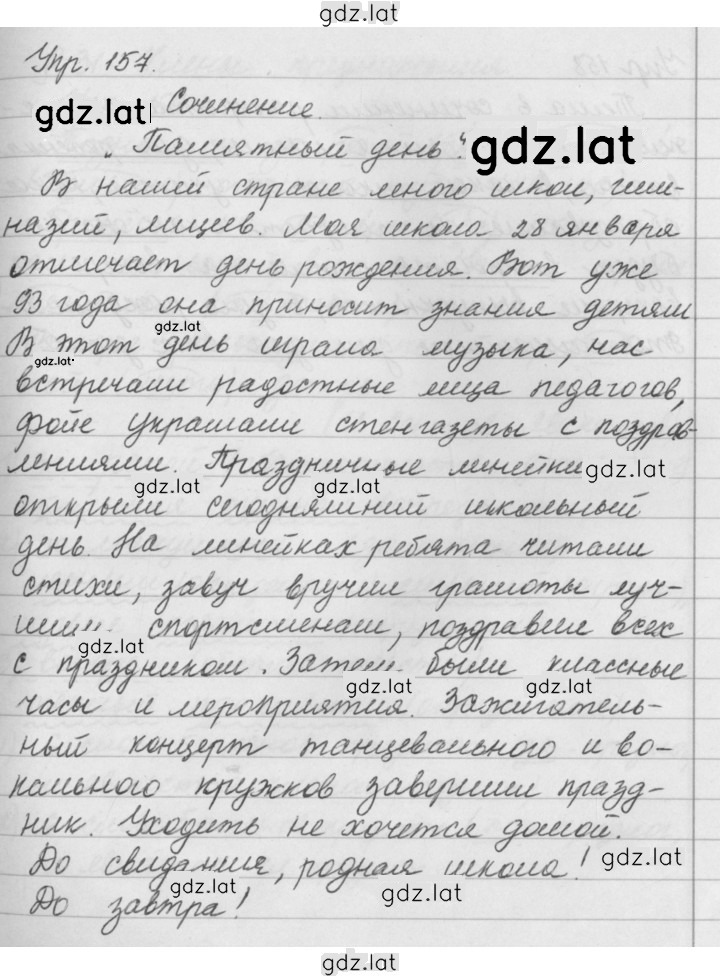 gdz.lat
Упр. 157.
gdz.lat
Сочинение.
„Памятный день".
gdz.lat
В нашей стране много школ, гим-
назий, лицеев. Моя школа 28 января
отмечает день рождения. Вот уже
93 года она приносит знания детям
gdz.lat
В этот день играла музыка, нас
gdz.lat
встречали радостные лица педагогов,
фойе украшали стенгазеты с поздрав-
лениями. Праздничные линейки
gdz.lat
gdz.lat gdz.lat
открыли сегодняшний школьный
день. На линейках ребята читали
стихи, завуч вручил грамоты луч-
шим спортсменам, поздравил всех
gdz.lat
с праздником. Затем были классные
gdz.lat gdz.lat
часы и мероприятия. Зажигатель-
ный концерт танцевального и во-
кального кружков завершили празд-
ник. Уходить не хочется домой.
До свидания, родная школа!
gdz.lat
gdz.lat gdz.lat
До завтра!
gdz.lat